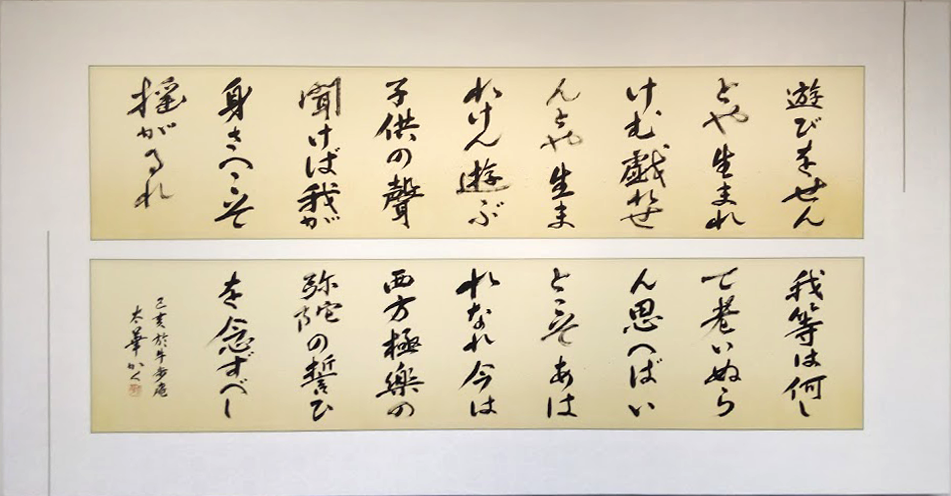 遊びをせん
とや生まれ
けむ戯れせ
んとや生ま
れけん遊ぶ
子供の聲
聞けば我が
身さへこそ
揺がるれ
我等は何し
て老いぬら
ん思へばい
とこそあは
れなれ今は
西方極樂の
弥陀の誓ひ
を念ずべし
己亥於牛歩庵
太華かく